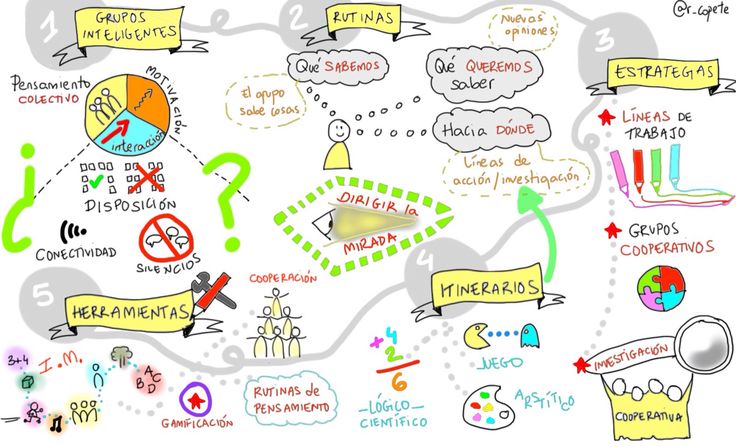 @r_copete
1
GRUPOS
INTELIGENTES
Pensamiento
COLECTIVO
MOTIVACIÓN
interacción
DISPOSICIÓN
CONECTIVIDAD
SILENCIOS
¿
?
2
RUTINAS
Qué SABEMOS
El grupo
sabe cosas
Nuevas
opiniones
Qué QUEREMOS
saber
Hacia DÓNDE
Líneas de
acción/investigación
DIRIGIR la
MIRADA
3
ESTRATEGIAS
LÍNEAS DE
TRABAJO
GRUPOS
COOPERATIVOS
INVESTIGACIÓN
COOPERATIVA
4
ITINERARIOS
+4
2
6
LÓGICO-
CIENTÍFICO
JUEGO
ARSTÍTICO
5
HERRAMIENTAS
COOPERACIÓN
I.M.
3+4
A
B C
D
GAMIFICACIÓN
RUTINAS de
PENSAMIENTO